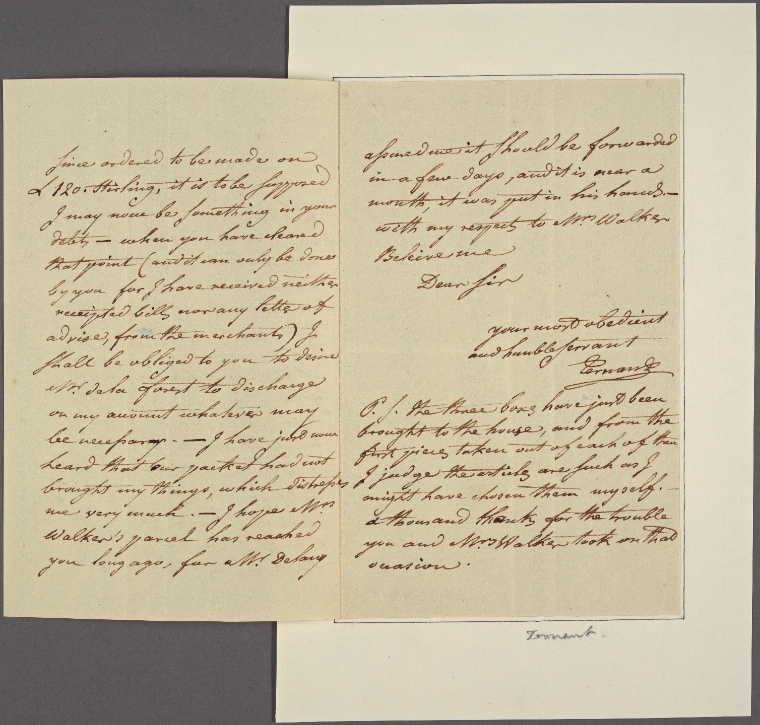 since ordered to be made on
£ 120. Stirling, it is to be supposed
I may now be something in your
debt — when you have cleared
that point (and it can only be done
by you for I have received neither
receipted bills nor any letter of
advise, from the merchants) I
shall be obliged to you to desire
Mr. dela forest to discharge
on my account whatever may
be necessary. — I have just now
heard that our packet had not
brought my things, which distresses
me very much. — I hope Mrs
Walker's parcel has reached
you long ago, for Mr. Delany
assured me it should be forwarded
in a few days, and it is near a
month, it was put in his hands. —
with my respect to Mrs Walker
Beleive me
Dear Sir
your most obedient
and humble servant
Ternant
P. S. the three boxes have just been
brought to the house, and from the
first pieces taken out of each of them
I judge the articles are such as I
might have chosen them myself. —
a thousand thanks for the trouble
you and Mrs Walker took on that
occasion.
Ternant.